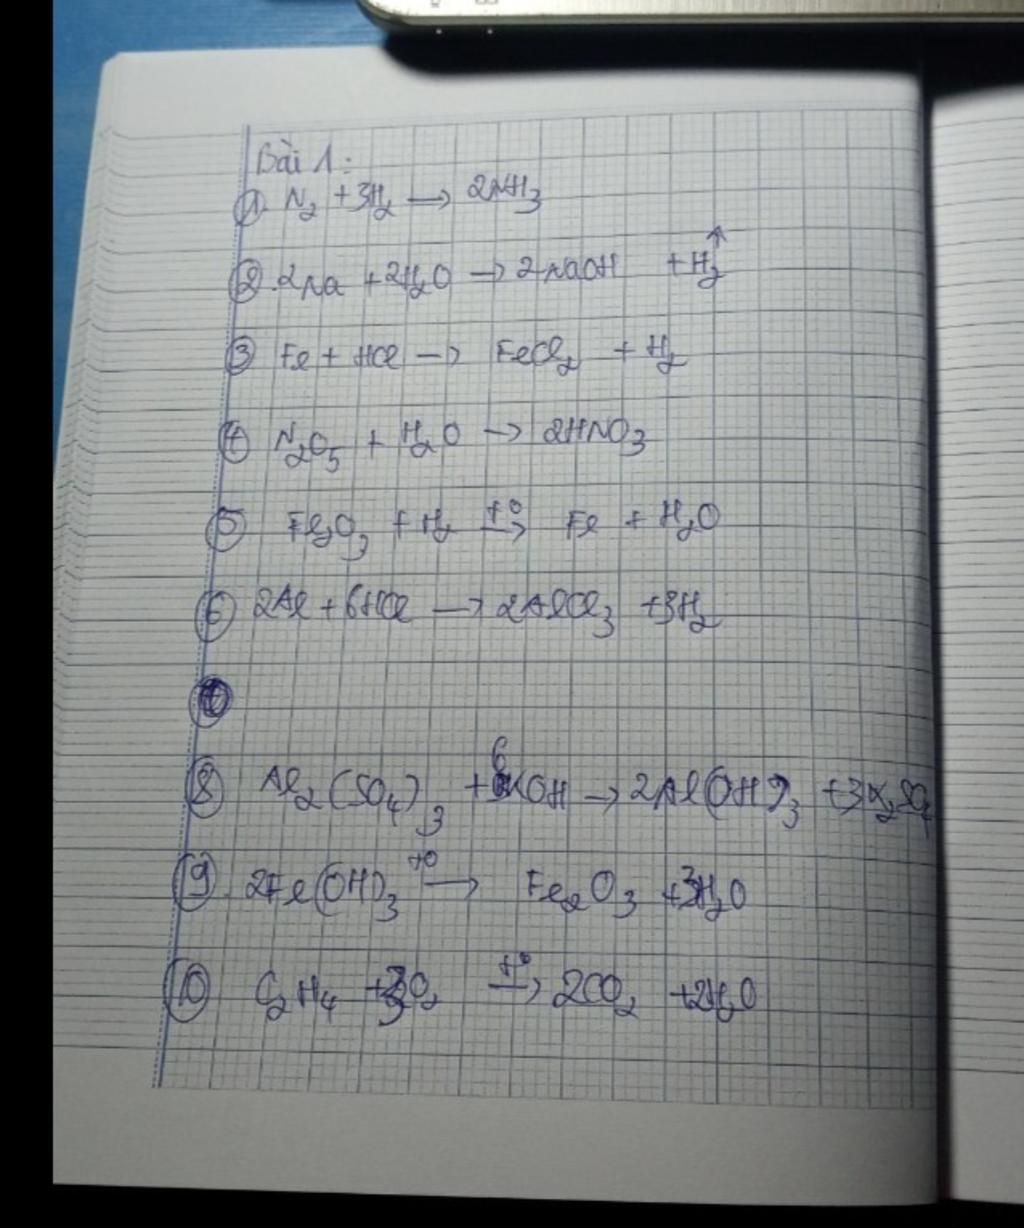 Bài 1:
① N₂ + 3H₂ → 2NH₃
②. 2Na + 2H₂O → 2NaOH + H₂↑
③ Fe + HCl → FeCl₂ + H₂
④ N₂O₅ + H₂O → 2HNO₃
⑤ Fe₂O₃ + H₂ t° → Fe + H₂O
⑥ 2Al + 6HCl → 2AlCl₃ + 3H₂
⑧ Al₂(SO₄)₃ + 6KOH → 2Al(OH)₃ + 3K₂SO₄
⑨. 2Fe(OH)₃ t° → Fe₂O₃ + 3H₂O
⑩ C₂H₄ + 3O₂ t° → 2CO₂ + 2H₂O